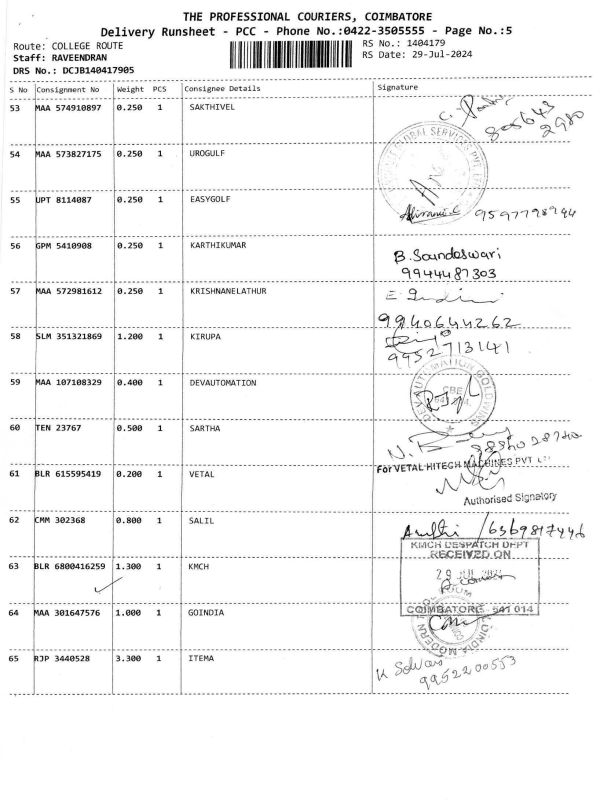 THE PROFESSIONAL COURIERS, COIMBATORE
Delivery Runsheet - PCC - Phone No.:0422-3505555 - Page No.:5
Route: COLLEGE ROUTE
RS No.: 1404179
Staff: RAVEENDRAN
RS Date: 29-Jul-2024
DRS No.: DCJB140417905
S No Consignment No Weight PCS Consignee Details Signature
53 MAA 574910897 0.250 1 SAKTHIVEL
54 MAA 573827175 0.250 1 UROGULF
GLOBAL SERVICES PVT.
55 UPT 8114087 0.250 1 EASYGOLF
56 GPM 5410908 0.250 1 KARTHIKUMAR B. Soundeswari
9944487303
57 MAA 572981612 0.250 1 KRISHNANELATHUR
9940644262
58 SLM 351321869 1.200 1 KIRUPA
9952713141
59 MAA 107108329 0.400 1 DEVAUTOMATION
CBE
60 TEN 23767 0.500 1 SARTHA
61 BLR 615595419 0.200 1 VETAL For VETAL HITECH MACHINES PVT LTD
Authorised Signatory
62 CMM 302368 0.800 1 SALIL
63 BLR 6800416259 1.300 1 KMCH KMCH DESPATCH DEPT
RECEIVED ON
COIMBATORE - 641 014
64 MAA 301647576 1.000 1 GOINDIA
65 RJP 3440528 3.300 1 ITEMA
9952200553